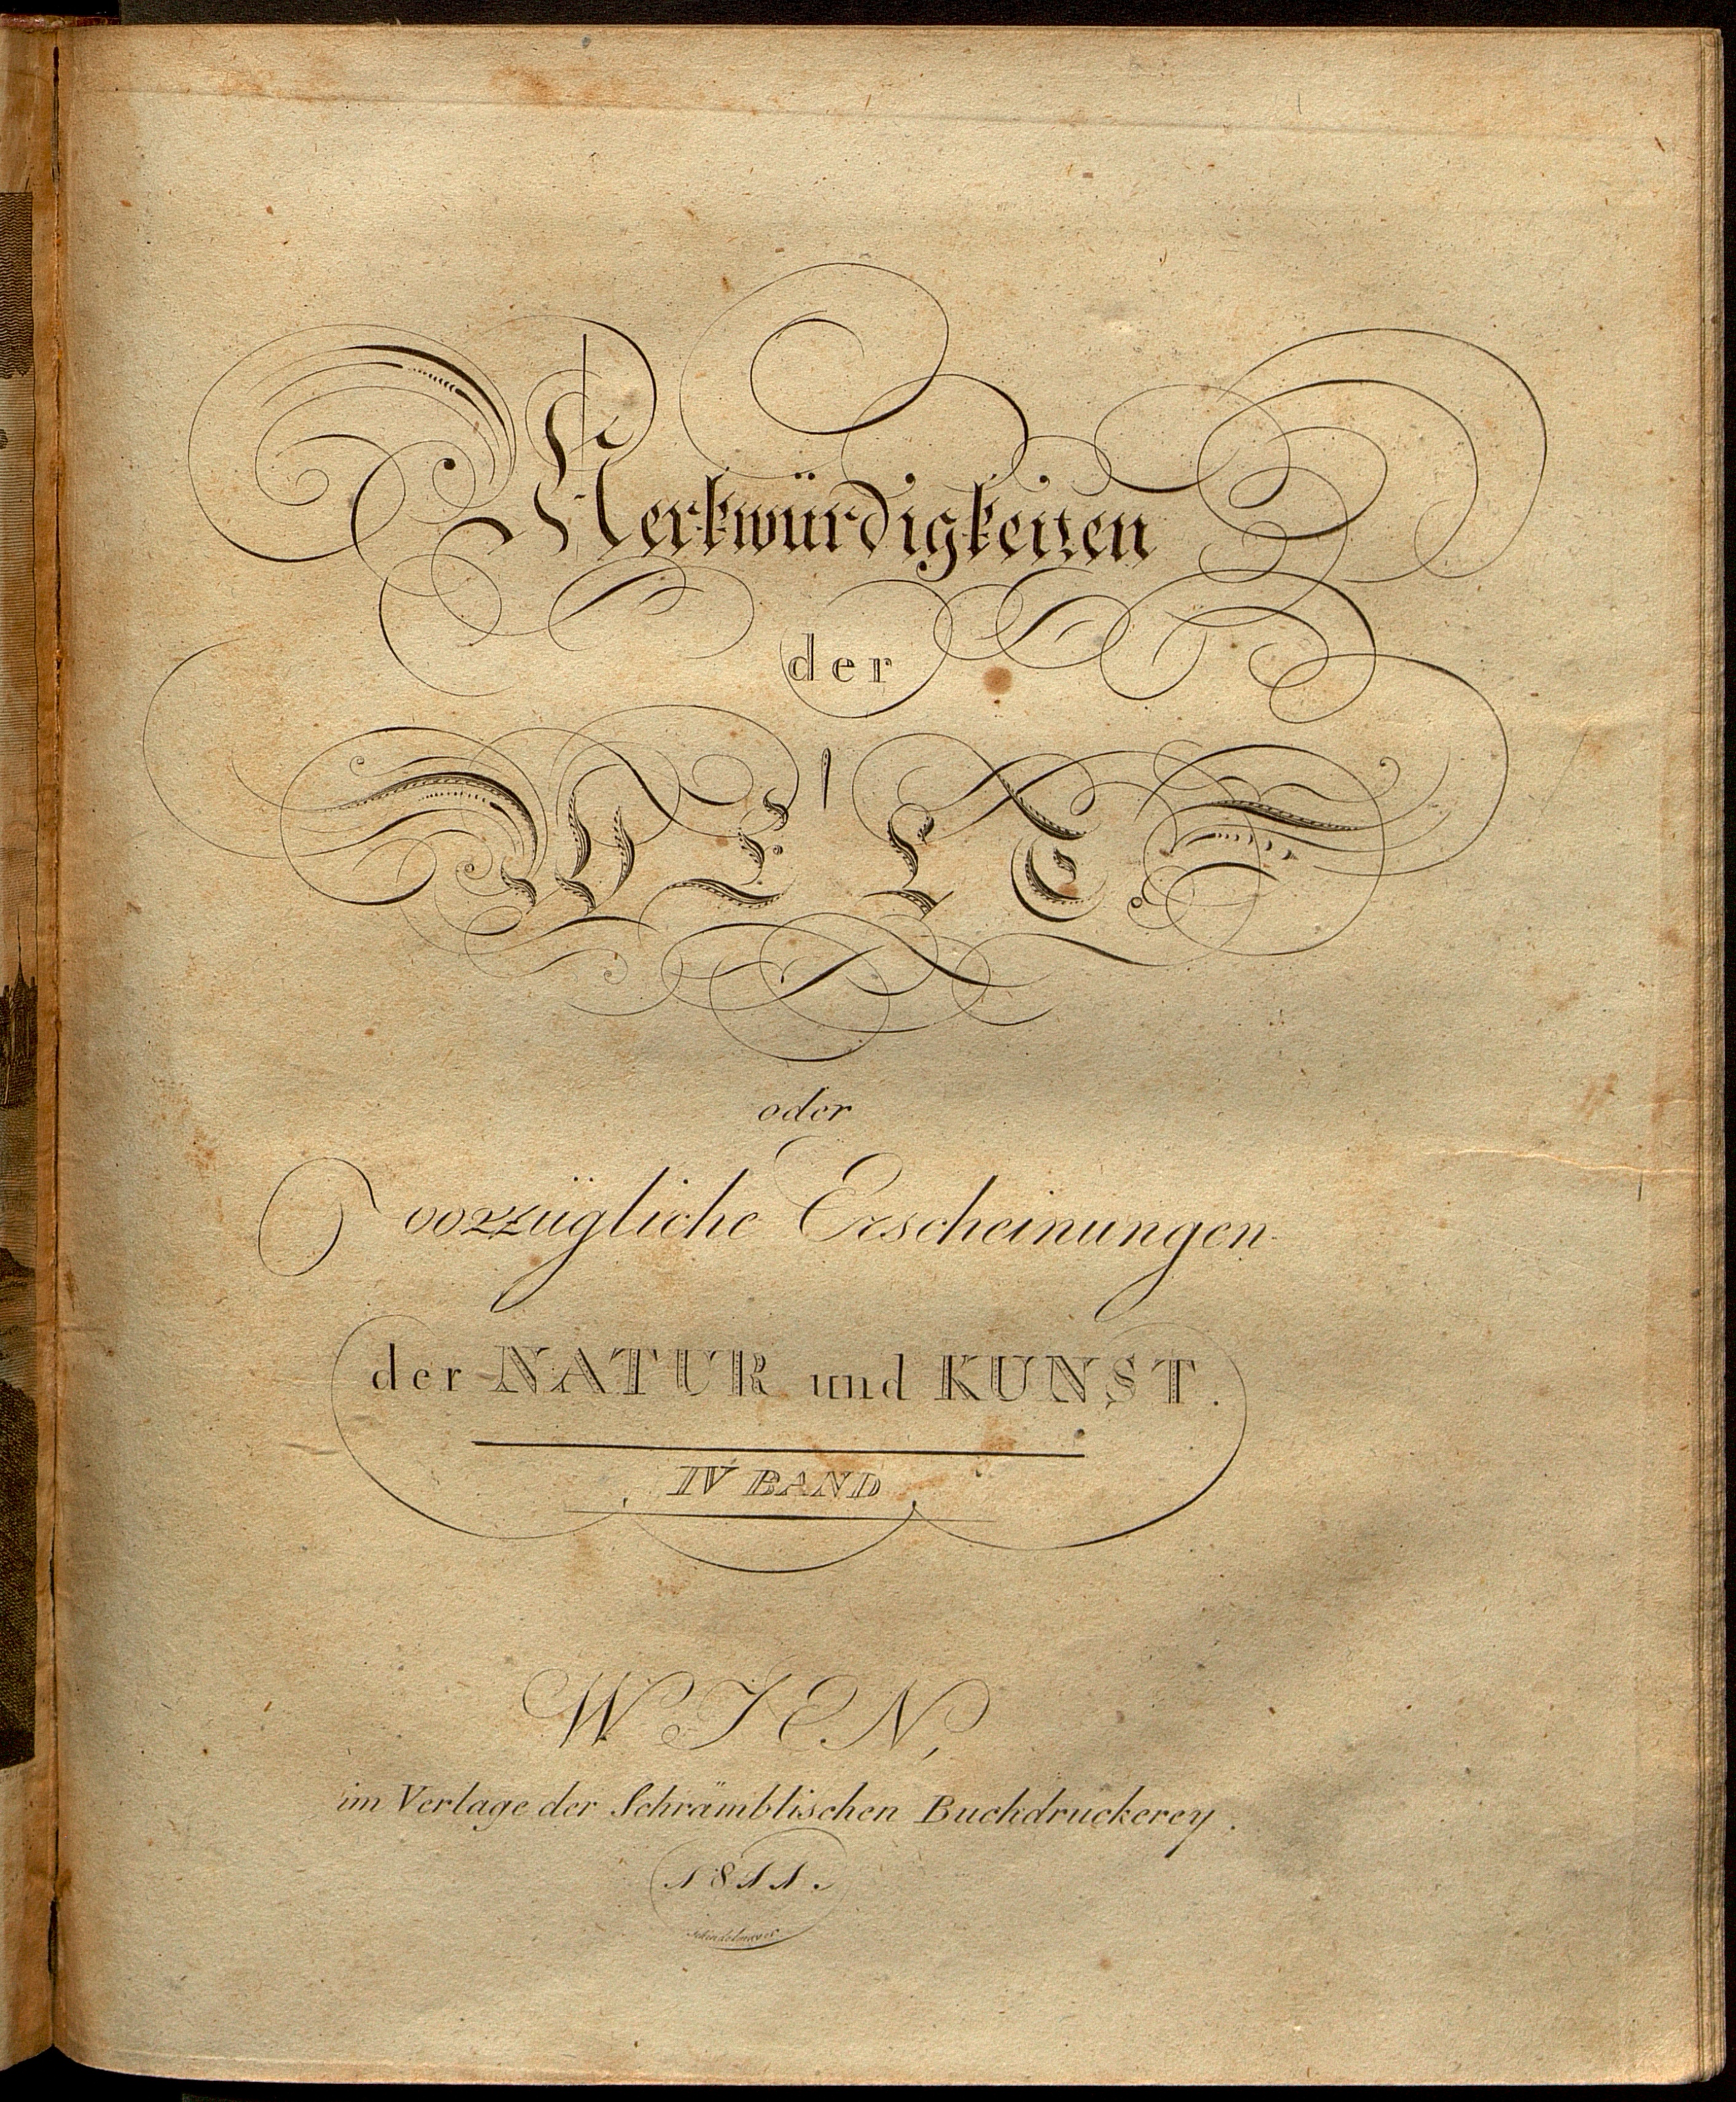 Merkwürdigkeiten
der
WELT
oder
vorzügliche Erscheinungen
der NATUR und KUNST.
IV BAND
WIEN,
im Verlage der Schrämblischen Buchdruckerey.
1811.
Schindelmayer